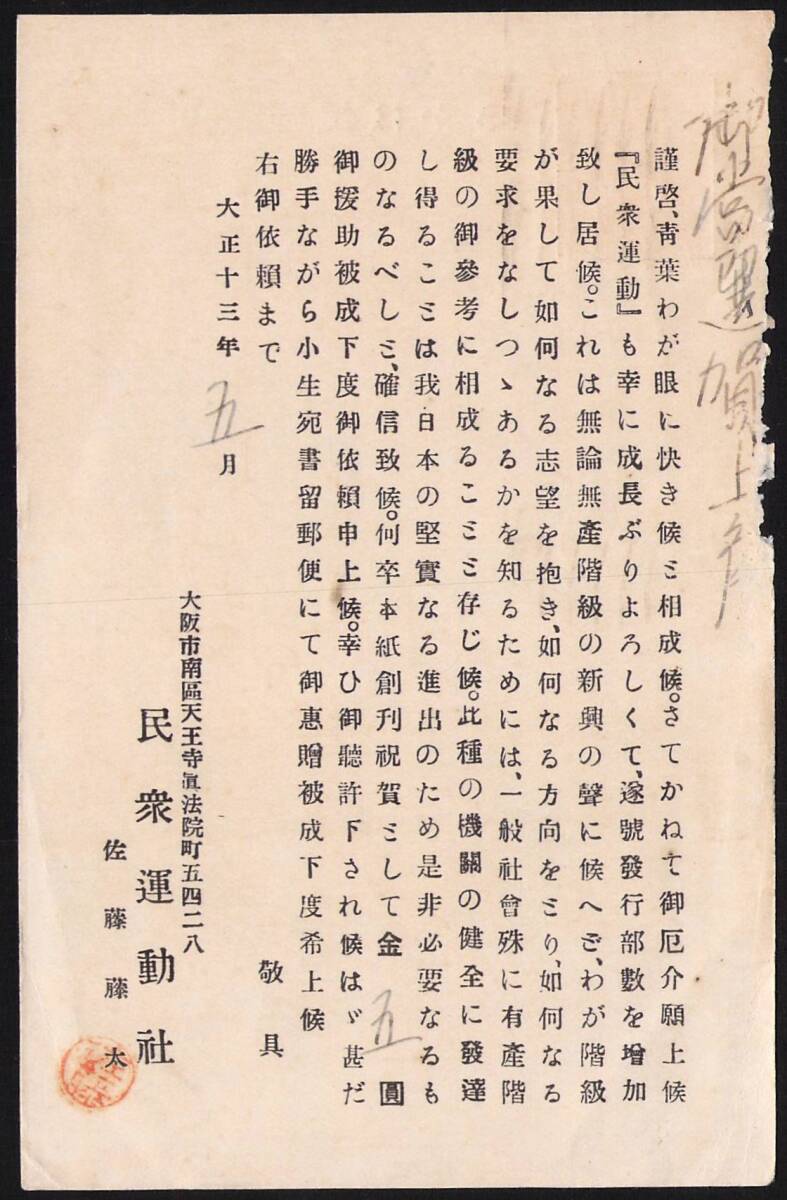 御当選賀上候
謹啓、靑葉わが眼に快き候と相成候。さてかねて御厄介願上候
『民衆運動』も幸に成長ぶりよろしくて、逐號發行部數を增加
致し居候。これは無論無產階級の新興の聲に候へど、わが階級
が果して如何なる志望を抱き、如何なる方向をとり、如何なる
要求をなしつゝあるかを知るためには、一般社會殊に有產階
級の御參考に相成ることゝ存じ候。此種の機關の健全に發達
し得ることは我日本の堅實なる進出のため是非必要なるも
のなるべしと、確信致候。何卒本紙創刊祝賀として金 五 圓
御援助被成下度御依賴申上候。幸ひ御聽許下され候はゞ甚だ
勝手ながら小生宛書留郵便にて御惠贈被成下度希上候
右御依賴まで 敬具
大正十三年 五 月
大阪市南區天王寺眞法院町五四二八
民衆運動社
佐藤藤太